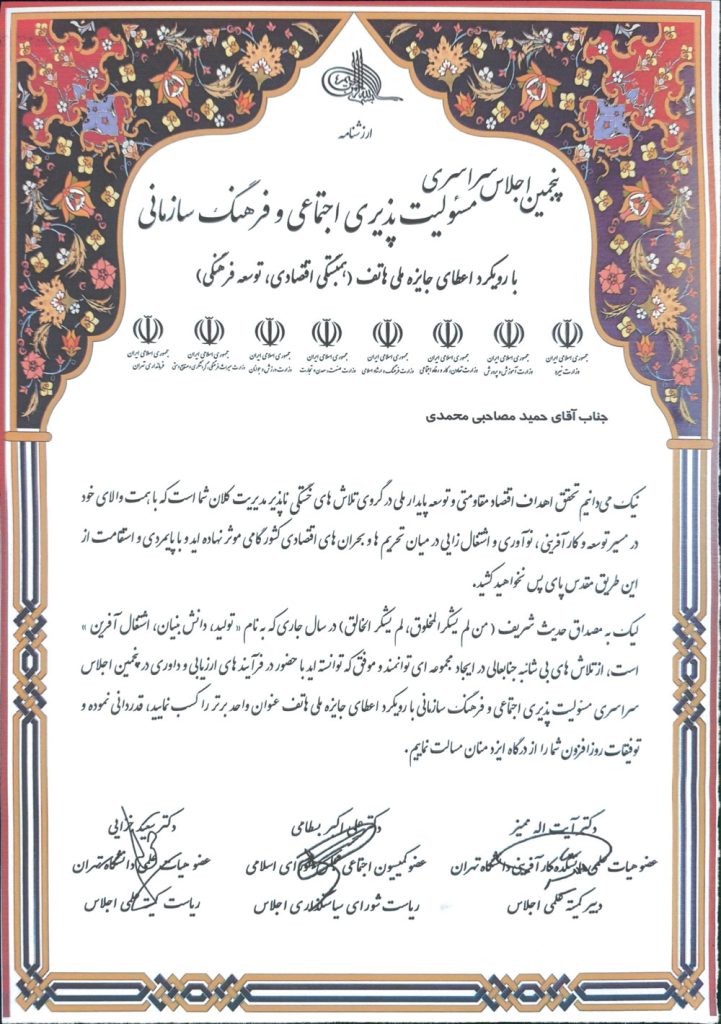 ارزشنامه
پنجمین اجلاس سراسری
مسئولیت پذیری اجتماعی و فرهنگ سازمانی
با رویکرد اعطای جایزه ملی هاتف (همبستگی اقتصادی، توسعه فرهنگی)
جمهوری اسلامی ایران جمهوری اسلامی ایران جمهوری اسلامی ایران جمهوری اسلامی ایران جمهوری اسلامی ایران جمهوری اسلامی ایران جمهوری اسلامی ایران جمهوری اسلامی ایران
وزارت نیرو وزارت آموزش و پرورش وزارت تعاون، کار و رفاه اجتماعی وزارت فرهنگ و ارشاد اسلامی وزارت صنعت، معدن و تجارت وزارت ورزش و جوانان وزارت میراث فرهنگی، گردشگری و صنایع دستی فرمانداری تهران
جناب آقای حمید مصاحبی محمدی
نیک می‌دانیم تحقق اهداف اقتصاد مقاومتی و توسعه پایدار ملی در گروی تلاش های خستگی ناپذیر مدیریت کلان شما است که با همت والای خود
در مسیر توسعه و کارآفرینی ، نوآوری و اشتغال زایی در میان تحریم ها و بحران های اقتصادی کشور گامی موثر نهاده اید و با پایمردی و استقامت از
این طریق مقدس پای پس نخواهید کشید.
لیک به مصداق حدیث شریف ( من لم یشکر المخلوق، لم یشکر الخالق) در سال جاری که به نام « تولید، دانش بنیان، اشتغال آفرین »
است، از تلاش های بی شائبه جنابعالی در ایجاد مجموعه ای توانمند و موفق که توانسته اید با حضور در فرآیند های ارزیابی و داوری در پنجمین اجلاس
سراسری مسئولیت پذیری اجتماعی و فرهنگ سازمانی با رویکرد اعطای جایزه ملی هاتف عنوان واحد برتر را کسب نمایید، قدردانی نموده و
توفیقات روزافزون شما را از درگاه ایزد منان مسالت نماییم.
دکتر آیت اله ممیز
عضو هیات علمی دانشکده کارآفرینی دانشگاه تهران
دبیر کمیته علمی اجلاس
دکتر علی اکبر بسطامی
عضو کمیسیون اجتماعی مجلس شورای اسلامی
ریاست شورای سیاستگذاری اجلاس
دکتر سعید خزایی
عضو هیات علمی دانشگاه تهران
ریاست کمیته علمی اجلاس